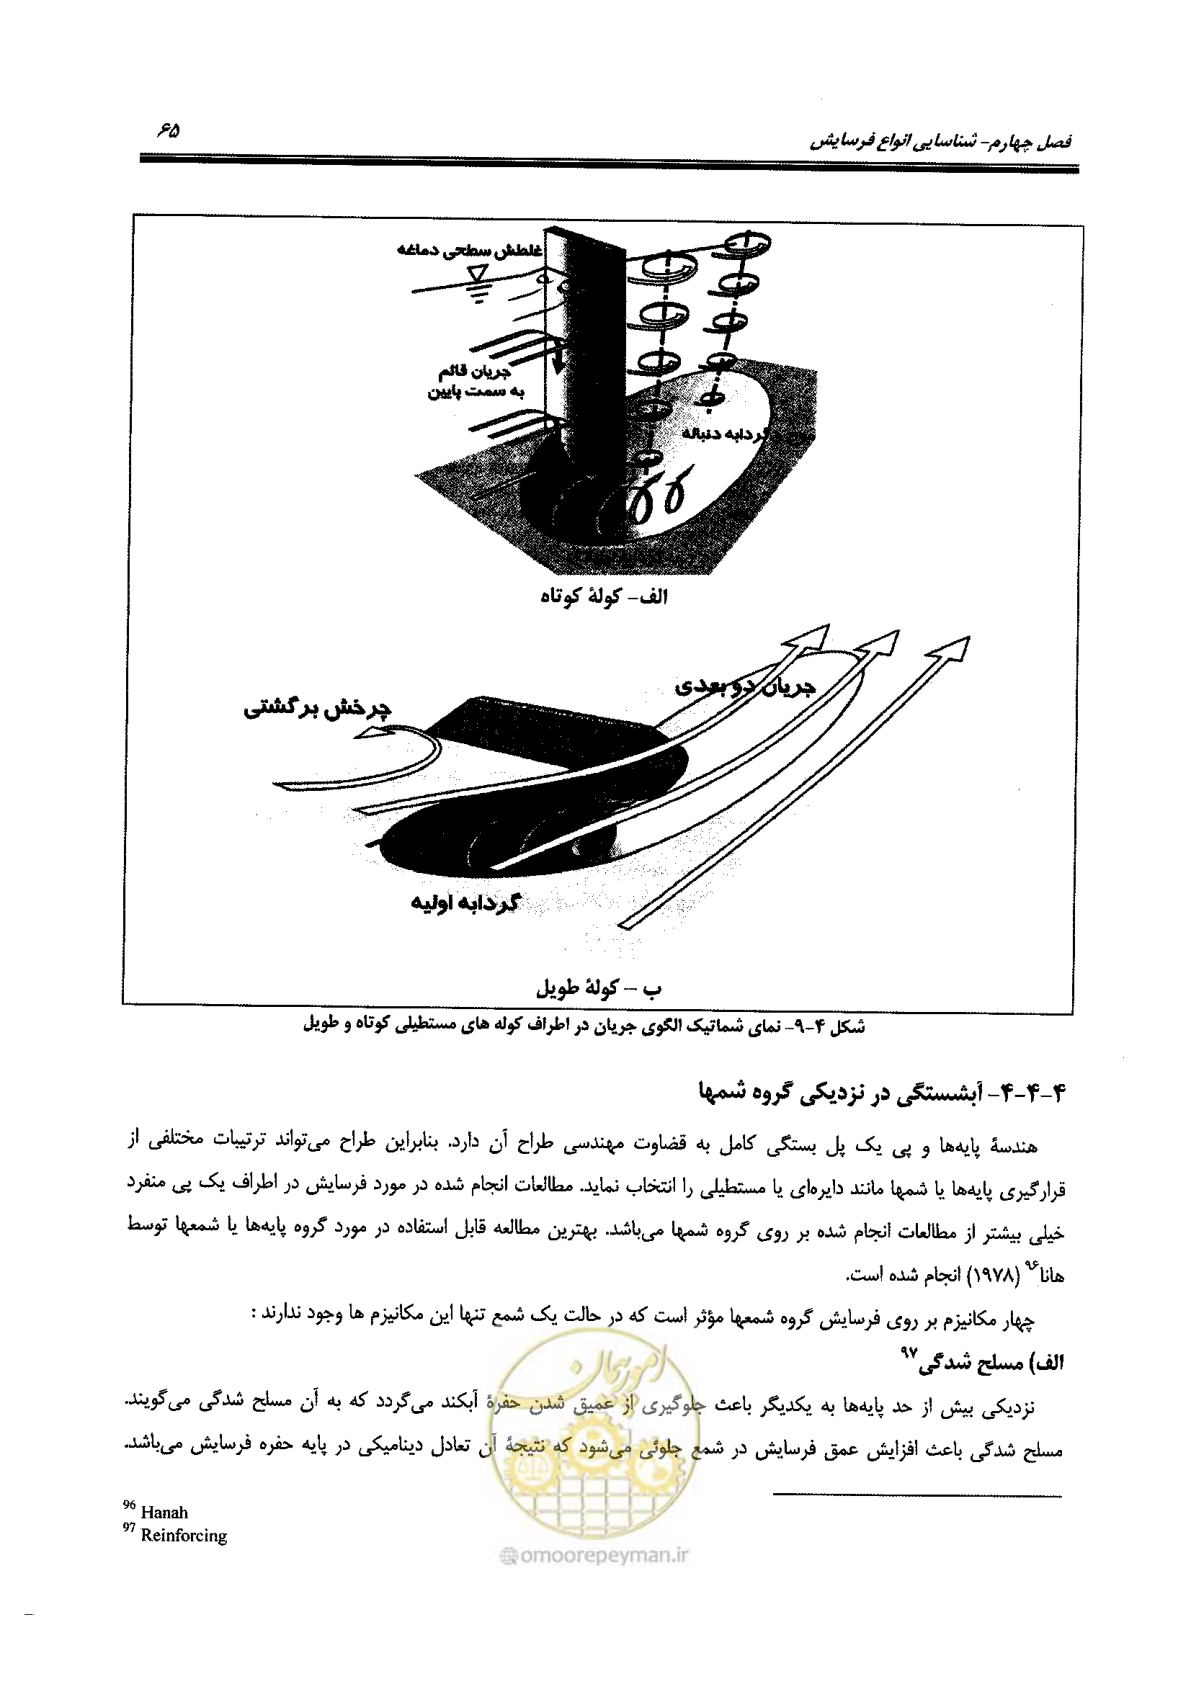 فصل چهارم- شناسایی انواع فرسایش
۶۵
غلطش سطحی دماغه
جریان قائم
به سمت پایین
گردابه دنباله
الف- کولهٔ کوتاه
جریان دو بعدی
چرخش برگشتی
گردابه اولیه
ب – کولهٔ طویل
شکل ۴-۹- نمای شماتیک الگوی جریان در اطراف کوله های مستطیلی کوتاه و طویل
۴-۴-۴- آبشستگی در نزدیکی گروه شمعها
هندسهٔ پایه‌ها و پی یک پل بستگی کامل به قضاوت مهندسی طراح آن دارد. بنابراین طراح می‌تواند ترتیبات مختلفی از
قرارگیری پایه‌ها یا شمها مانند دایره‌ای یا مستطیلی را انتخاب نماید. مطالعات انجام شده در مورد فرسایش در اطراف یک پی منفرد
خیلی بیشتر از مطالعات انجام شده بر روی گروه شمها می‌باشد. بهترین مطالعه قابل استفاده در مورد گروه پایه‌ها یا شمعها توسط
هانا۹۶ (۱۹۷۸) انجام شده است.
چهار مکانیزم بر روی فرسایش گروه شمعها مؤثر است که در حالت یک شمع تنها این مکانیزم ها وجود ندارند :
الف) مسلح شدگی۹۷
نزدیکی بیش از حد پایه‌ها به یکدیگر باعث جلوگیری از عمیق شدن حفرهٔ آبکند می‌گردد که به آن مسلح شدگی می‌گویند.
مسلح شدگی باعث افزایش عمق فرسایش در شمع جلوئی می‌شود که نتیجهٔ آن تعادل دینامیکی در پایه حفره فرسایش می‌باشد.
96 Hanah
97 Reinforcing
امور پیمان
@omoorepeyman.ir